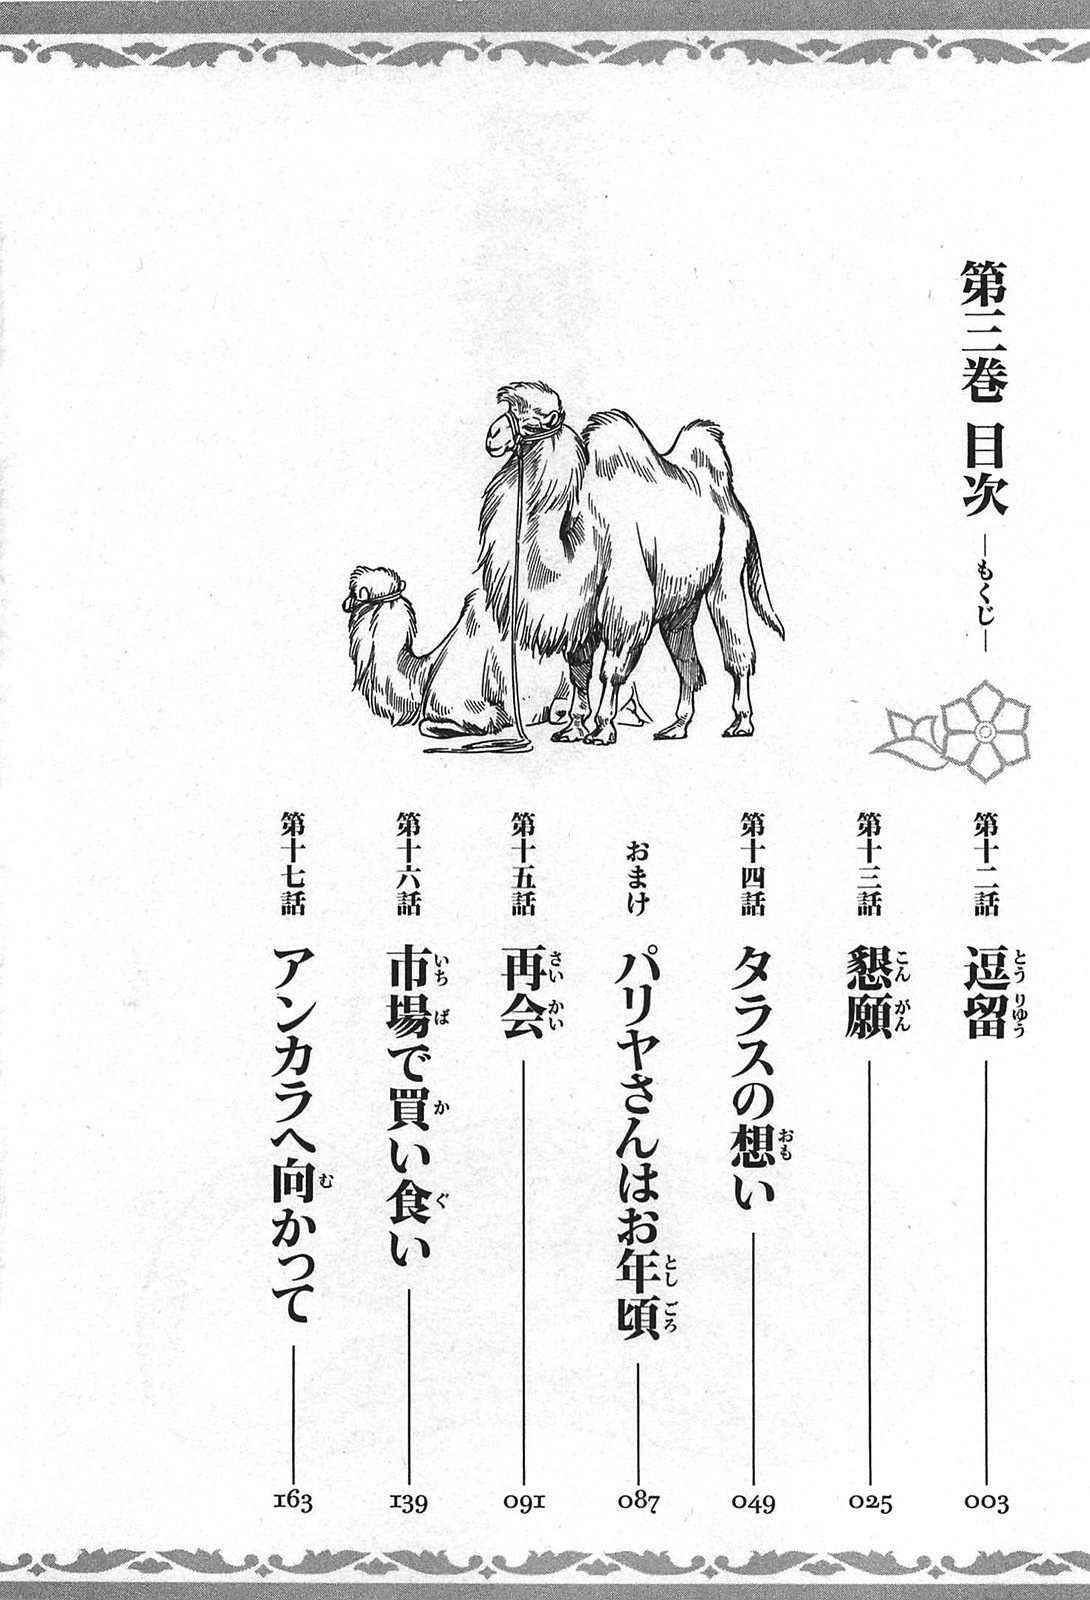 第三巻 目次 ―もくじ―
第十二話 逗留 003
とうりゅう
第十三話 懇願 025
こんがん
第十四話 タラスの想い 049
おも
おまけ パリヤさんはお年頃 087
としごろ
第十五話 再会 091
さいかい
第十六話 市場で買い食い 139
いちばかぐ
第十七話 アンカラへ向かって 163
む